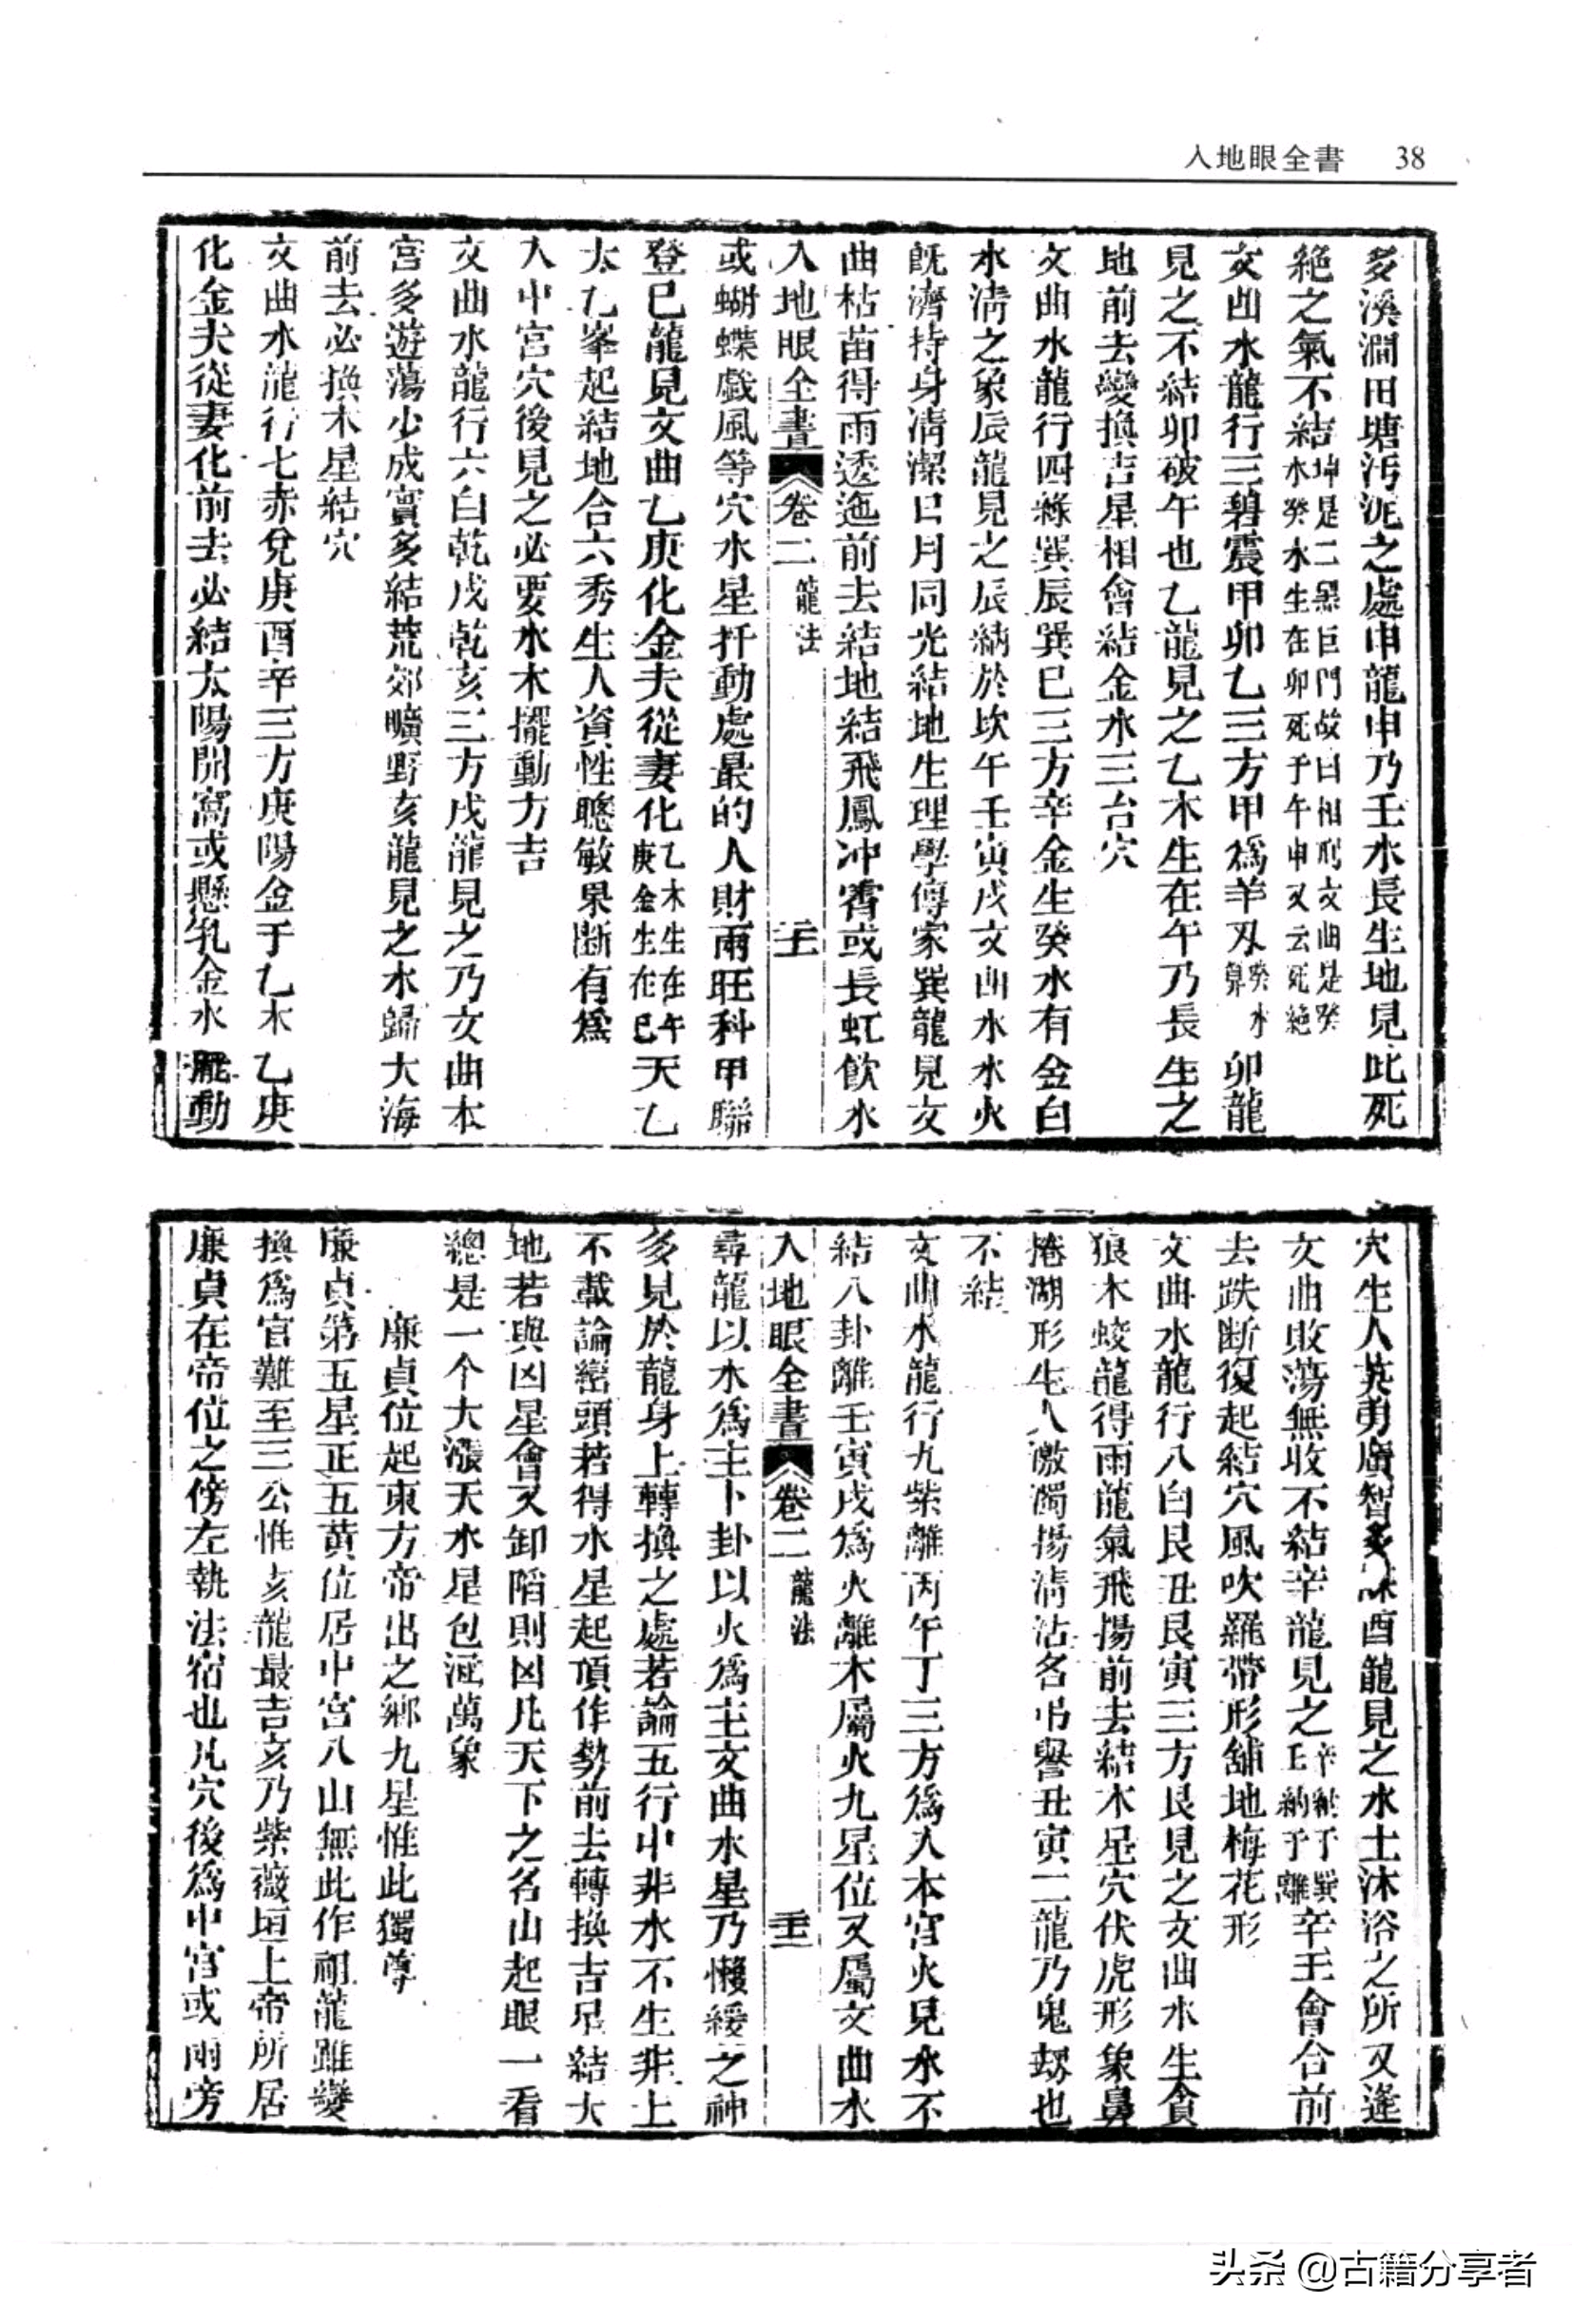 入地眼全書 38
多溪澗田塘汚泥之處申龍申乃壬水長生地見此死
絶之氣不結坤是二黑巨門故曰相刑文曲是癸水癸水生在卯死于午申又云死絶
文曲水龍行三碧震甲卯乙三方甲爲羊刄癸水卯龍
見之不結卯破午也乙龍見之乙木生在午乃長生之
地前去變換吉星相會結金水三台穴
文曲水龍行四綠巽辰巽巳三方辛金生癸水有金白
水淸之象辰龍見之辰納於坎午壬寅戌文曲水水火
旣濟持身淸潔日月同光結地生理學傳家巽龍見文
曲枯苗得雨透迤前去結地結飛鳳冲霄或長虹飲水
入地眼全書 卷二 龍法
或蝴蝶戲風等穴水星扦動處最的人財兩旺科甲聯
登巳龍見文曲乙庚化金夫從妻化乙木生在午庚金生在巳天乙
太乙峯起結地合六秀生人資性聰敏果斷有爲
入中宮穴後見之必要水木擺動方吉
文曲水龍行六白乾戌乾亥三方戌龍見之乃文曲本
宮多遊蕩少成實多結荒郊曠野亥龍見之水歸大海
前去必換木星結穴
文曲水龍行七赤兌庚酉辛三方庚陽金于乙木乙庚
化金夫從妻化前去必結太陽開窩或懸乳金水擺動
穴生人英勇廣智多謀酉龍見之水土沐浴之所又逢
文曲敗蕩無收不結辛龍見之辛納于巽壬納于離辛壬會合前
去跌斷復起結穴風吹羅帶形舖地梅花形
文曲水龍行八白艮丑艮寅三方艮見之文曲水生貪
狼木蛟龍得雨龍氣飛揚前去結木星穴伏虎形象鼻
捲湖形生人激濁揚淸沽名弔譽丑寅二龍乃鬼刼也
不結
文曲水龍行九紫離丙午丁三方爲入本宮火見水不
結八卦離壬寅戌爲火離木屬火九星位又屬文曲水
入地眼全書 卷二 龍法
尋龍以水爲主卜卦以火爲主文曲水星乃懶緩之神
多見於龍身上轉換之處若論五行中非水不生非土
不載論巒頭若得水星起頂作勢前去轉換吉星結大
地若與凶星會又卸陷則凶凡天下之名山起眼一看
總是一个大漲天水星包涵萬象
廉貞位起東方帝出之鄕九星惟此獨尊
廉貞第五星正五黃位居中宮八山無此作祖龍雖變
換爲官難至三公惟亥龍最吉亥乃紫薇垣上帝所居
廉貞在帝位之傍左執法宿也凡穴後爲中宮或兩旁
头条@古籍分享者